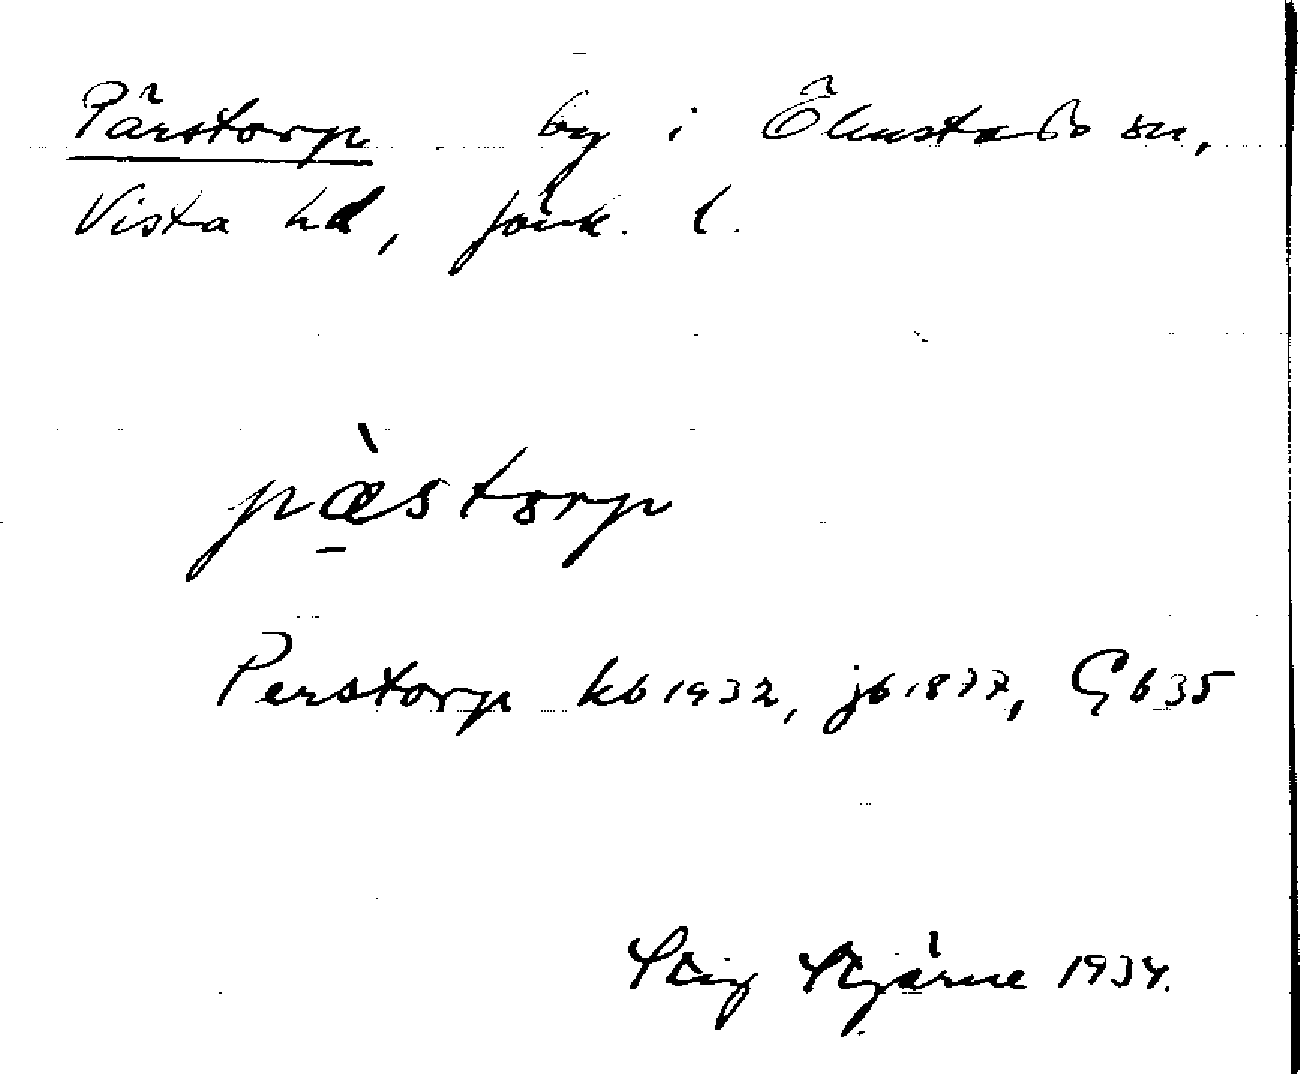 Pärstorp by i Ölmstads sn,
Vista hd, Jönk. l.
pæ̀storp
Perstorp kb 1932, jb 1877, Gb 35
Stig Stjärne 1934.